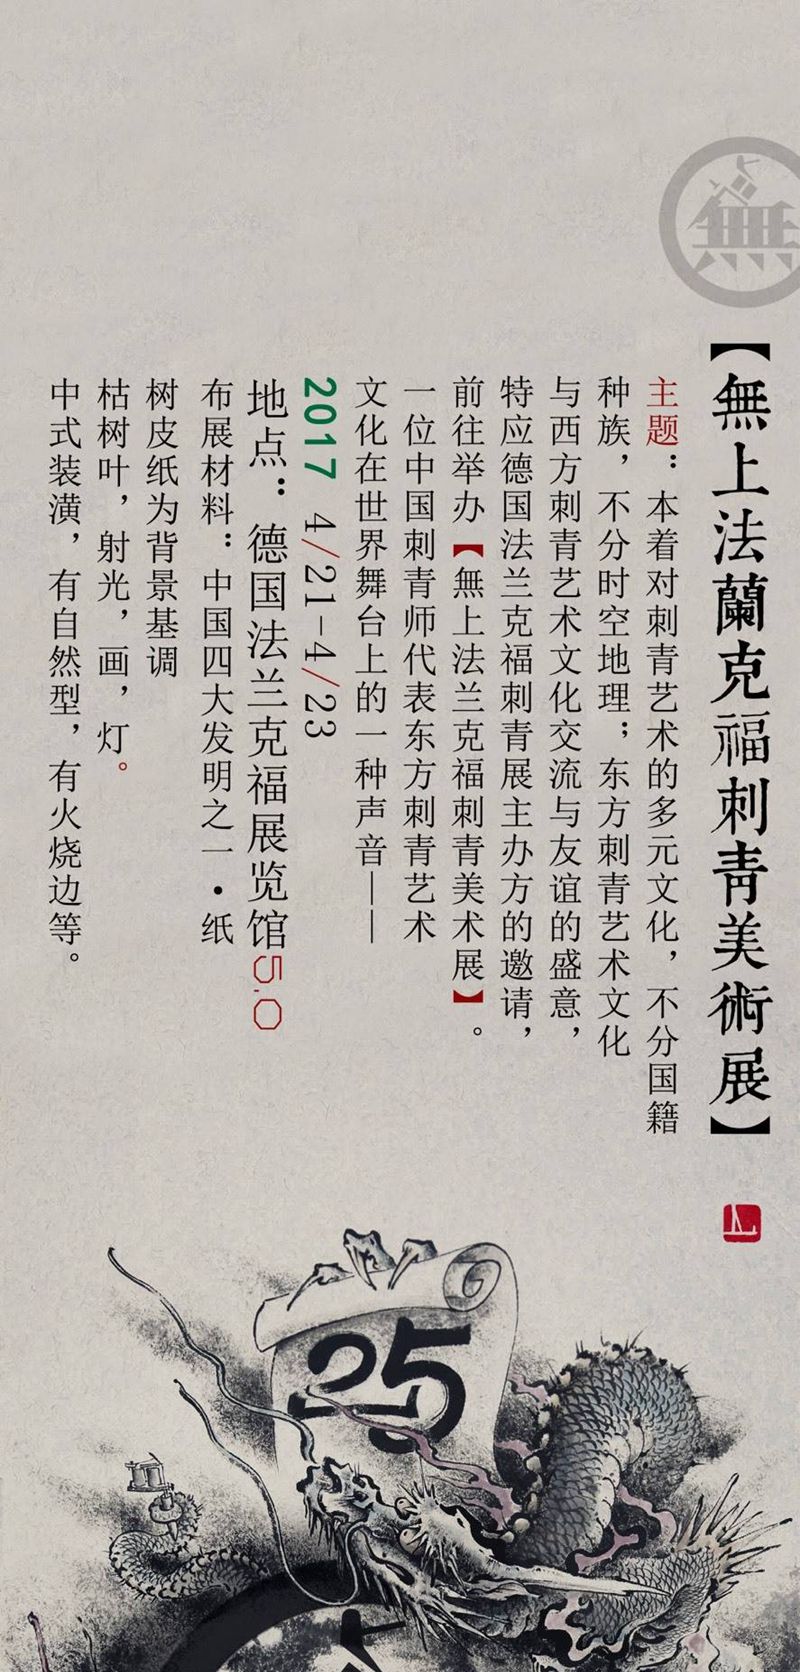 無
【無上法蘭克福刺青美術展】
主题：本着对刺青艺术的多元文化，不分国籍
种族，不分时空地理；东方刺青艺术文化
与西方刺青艺术文化交流与友谊的盛意，
特应德国法兰克福刺青展主办方的邀请，
前往举办【無上法兰克福刺青美术展】。
一位中国刺青师代表东方刺青艺术
文化在世界舞台上的一种声音——
2017 4/21-4/23
地点：德国法兰克福展览馆5.0
布展材料：中国四大发明之一·纸
树皮纸为背景基调
枯树叶，射光，画，灯。
中式装潢，有自然型，有火烧边等。
25